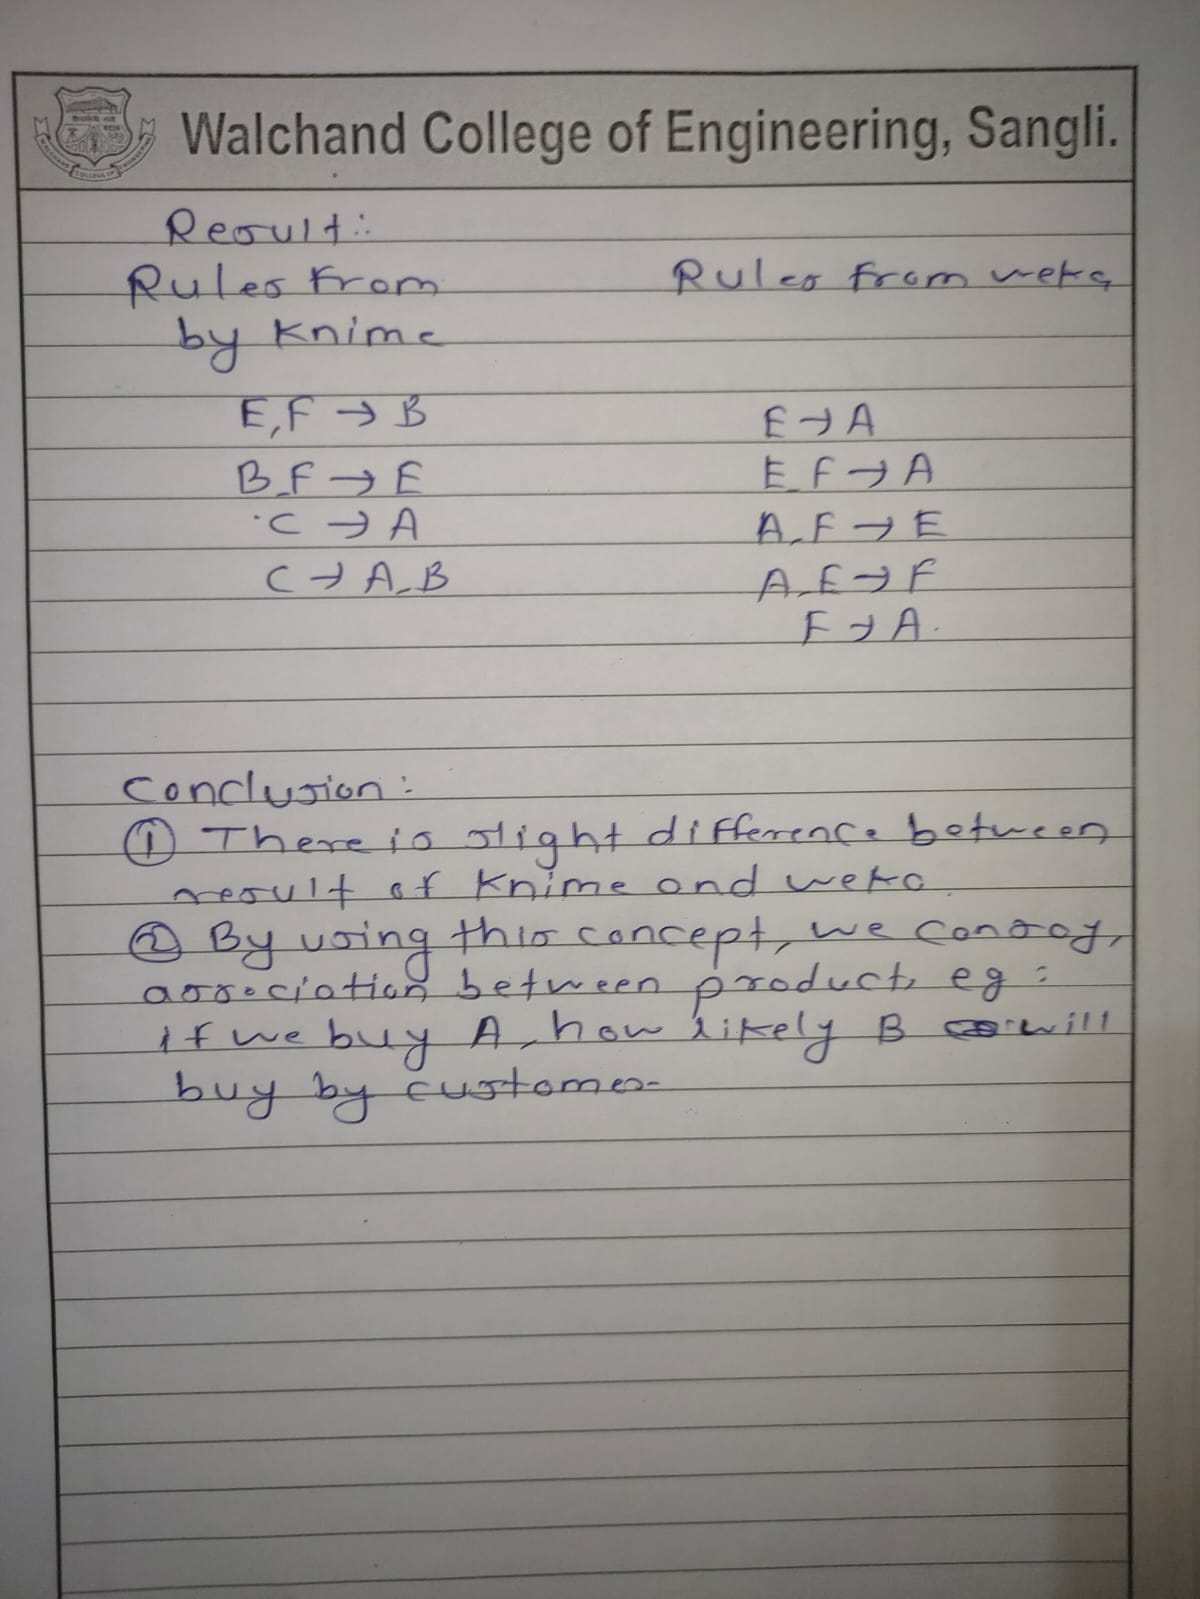 Walchand College of Engineering, Sangli.
Result:
Rules from
by Knime
Rules from weka
E,F → B
B,F → E
C → A
C → A,B
E → A
E,F → A
A,F → E
A,E → F
F → A.
Conclusion:
① There is slight difference between
result of Knime and weka.
② By using this concept, we can say,
association between product, eg:
if we buy A, how likely B will
buy by customer